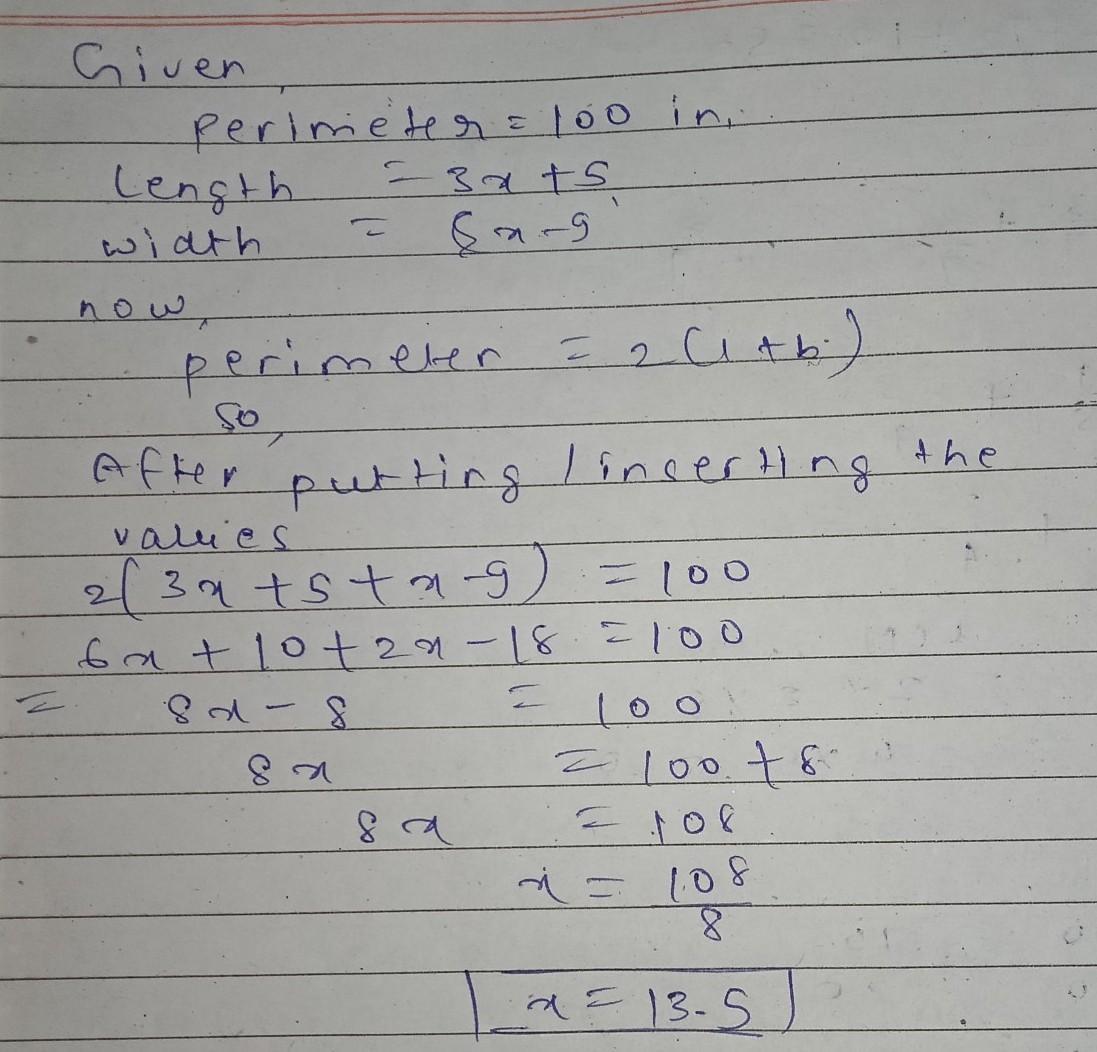 Given,
perimeter = 100 in.
Length = 3x + 5
width = 5x - 9
now,
perimeter = 2(l + b)
so,
After putting / inserting the
values
2(3x + 5 + x - 9) = 100
6x + 10 + 2x - 18 = 100
= 8x - 8 = 100
8x = 100 + 8
8x = 108
x = 108/8
x = 13.5